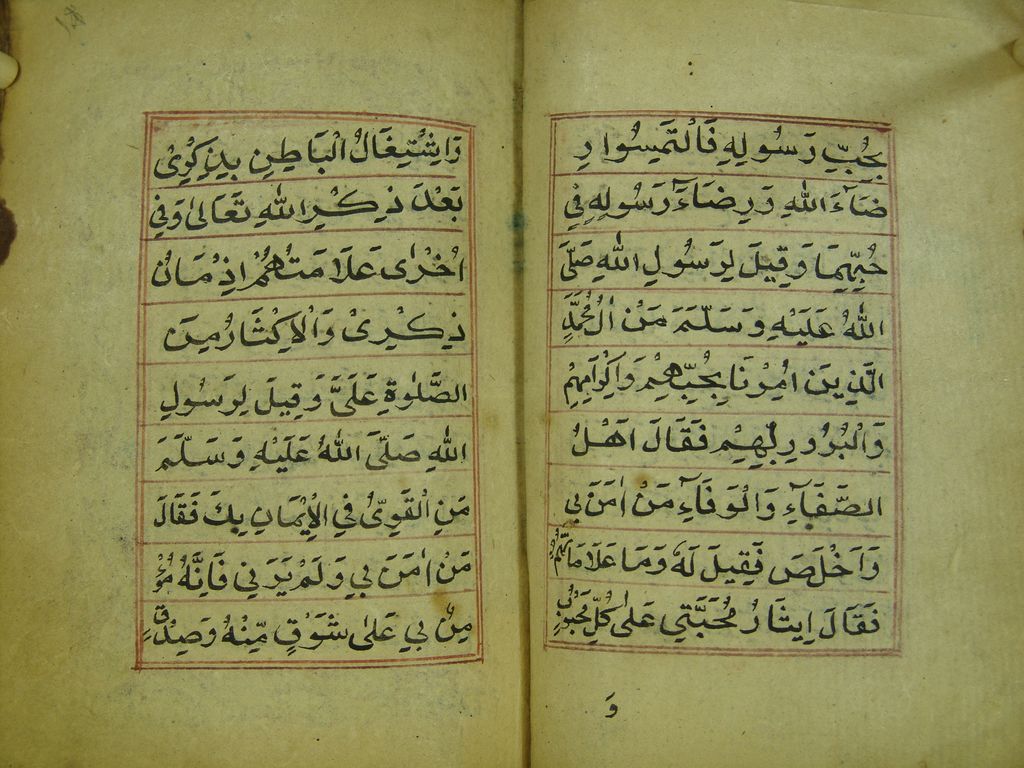 بِحُبِّ رَسُولِهِ فَالْتَمِسُوا رِ
ضَآءَ اللهِ وَرِضَآءَ رَسُولِهِ فِي
حُبِّهِمَا وَقِيلَ لِرَسُولِ اللهِ صَلَّى
اللهُ عَلَيْهِ وَسَلَّمَ مَنْ اٰلُ مُحَمَّدٍ
الَّذِينَ اُمِرْنَا بِحُبِّهِمْ وَاِكْرَامِهِمْ
وَالْبُرُورِ بِهِمْ فَقَالَ اَهْلُ
الصَّفَآءِ وَالْوَفَآءِ مَنْ اٰمَنَ بِي
وَاَخْلَصَ فَقِيلَ لَهُ وَمَا عَلَامَاتُهُمْ
فَقَالَ اِيثَارُ مُحَبَّتِي عَلٰى كُلِّ مَحْبُوبٍ
وَ
وَاشْتِغَالُ الْبَاطِنِ بِذِكْرِيْ
بَعْدَ ذِكْرِ اللهِ تَعَالٰى وَفِي
اُخْرٰى عَلَامَتُهُمْ اِدْمَانُ
ذِكْرِيْ وَالْاِكْثَارُ مِنَ
الصَّلٰوةِ عَلَيَّ وَقِيلَ لِرَسُولِ
اللهِ صَلَّى اللهُ عَلَيْهِ وَسَلَّمَ
مَنِ الْقَوِيُّ فِي الْاِيْمَانِ بِكَ فَقَالَ
مَنْ اٰمَنَ بِي وَلَمْ يَرَنِي فَاِنَّهُ مُؤْ
مِنٌ بِي عَلٰى شَوْقٍ مِّنْهُ وَصِدْقٍ